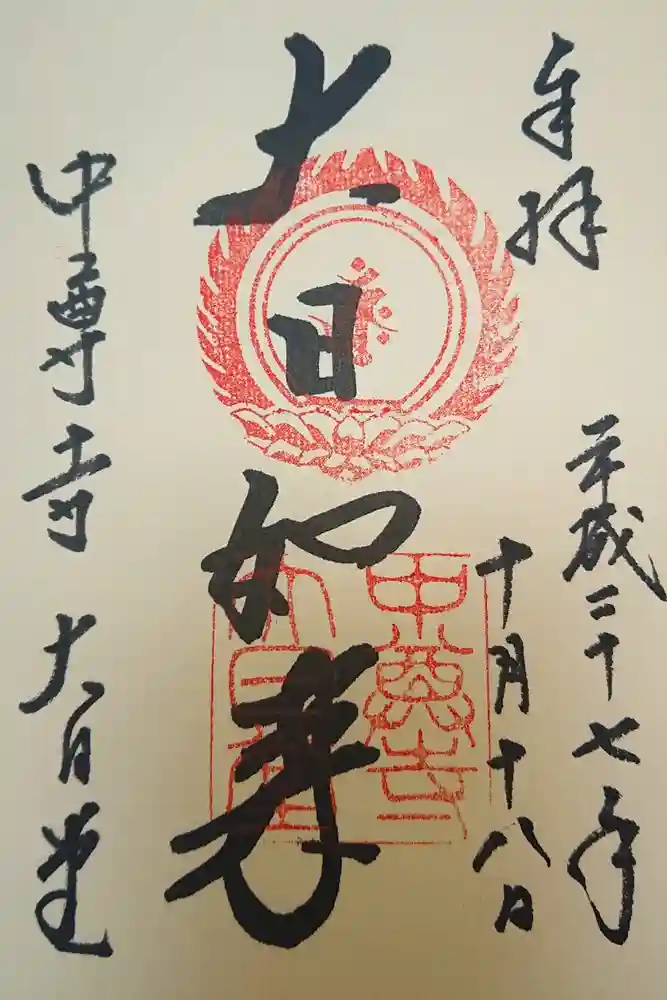 奉拝
平成二十七年
十月十八日
大日如来
中尊寺
大日堂
中尊寺 大日堂